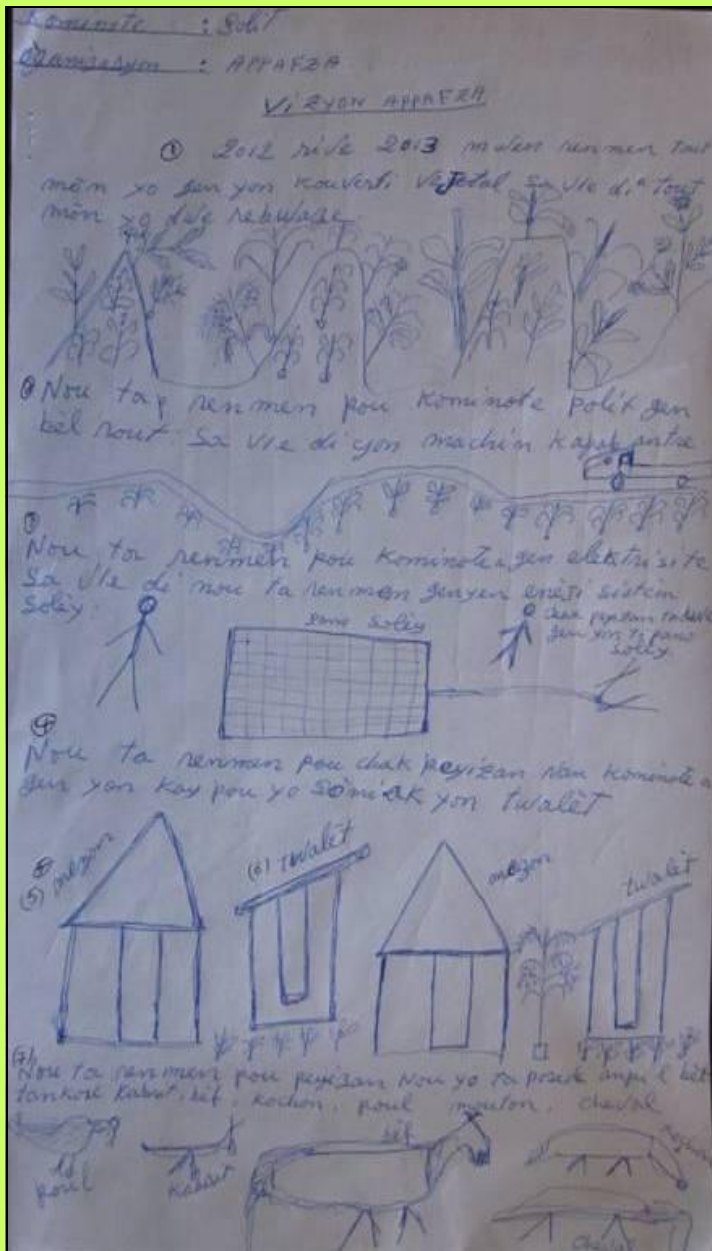 Kominote : Solit
Òganizasyon : APPAFZA
VIZYON APPAFZA
① 2012 rive 2013 nou ta renmen tout
mòn yo gen yon kouvèti vejetal sa vle di tout
mòn yo dwe rebwaze.
Nou ta renmen pou kominote gen
bèl rout. Sa vle di yon machin kapab antre
Nou ta renmen pou kominote a gen elektrisite
Sa vle di nou ta renmen genyen enèji sistèm
Solèy.
pano Solèy
chak peyizan ta dwe
gen yon ti pano
Solèy
④
Nou ta renmen pou chak peyizan nan kominote a
gen yon kay pou yo dòmi ak yon twalèt
(5) mezon
(6) twalèt
mezon
twalèt
(7)
Nou ta renmen pou peyizan Nou yo ta posede anpil bèt
tankou Kabrit, bèf, kochon, poul mouton, cheval
poul
Kabrit
bèf
cheval